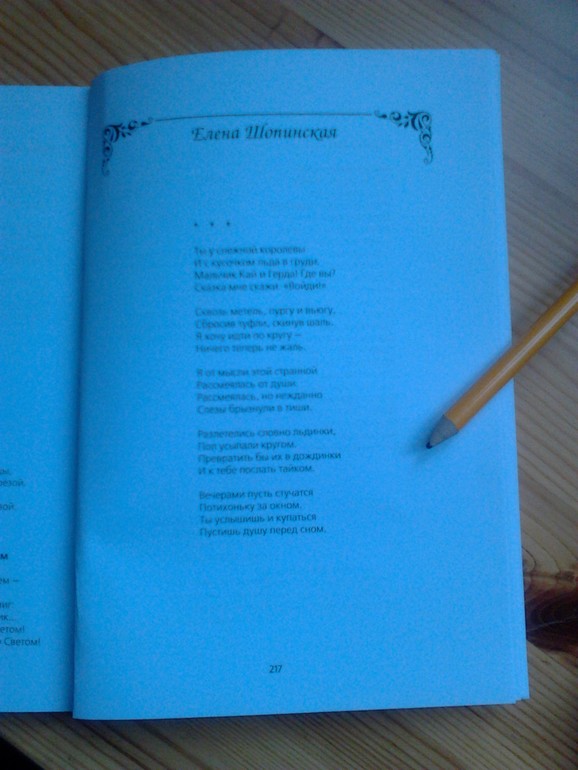 Елена Шопинская
* * *
Ты у снежной королевы
И с кусочком льда в груди.
Мальчик Кай и Герда! Где вы?
Сказка мне скажи: «Войди!»
Сквозь метель, пургу и вьюгу,
Сбросив туфли, скинув шаль,
Я хочу идти по кругу –
Ничего теперь не жаль.
Я от мысли этой странной
Рассмеялась от души.
Рассмеялась, но нежданно
Слезы брызнули в тиши.
Разлетелись словно льдинки,
Пол усыпали кругом.
Превратить бы их в дождинки
И к тебе послать тайком.
Вечерами пусть стучатся
Потихоньку за окном.
Ты услышишь и купаться
Пустишь душу перед сном.
217
етом!
Светом!